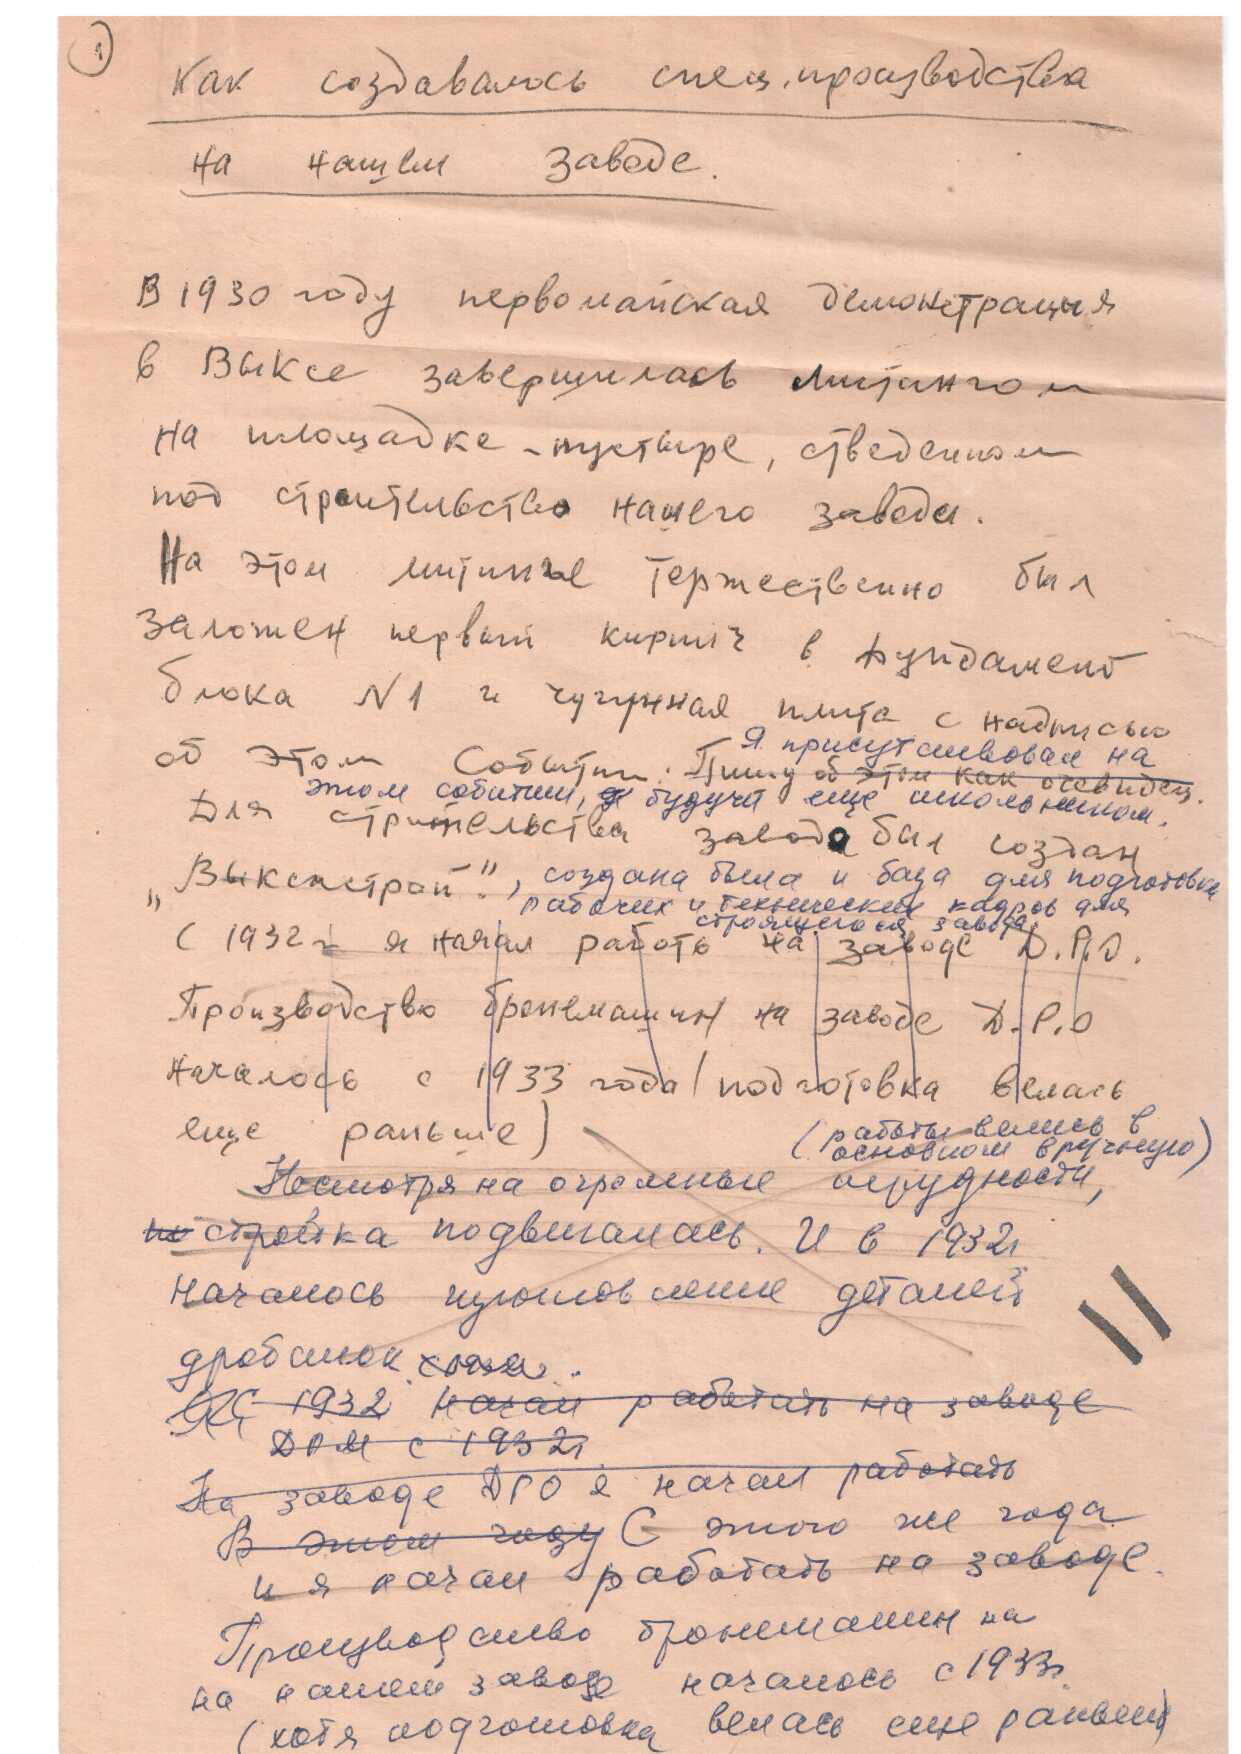 1
Как создавалось спец.производства
на нашем заводе.
В 1930 году первомайская демонстрация
в Выксе завершилась митингом
на площадке-пустыре, отведенном
под строительство нашего завода.
На этом митинге торжественно был
заложен первый кирпич в фундамент
блока N1 и чугунная плита с надписью
об этом событии. Пишу об этом как очевидец.
Я присутствовал на
этом событии, будучи еще школьником.
Для строительства завода был создан
„Выксастрой", создана была и база для подготовки
рабочих и технических кадров для
строящегося завода.
С 1932 г я начал работь на заводе Д.Р.О.
Производство бронемашин на заводе Д.Р.О
началось с 1933 года (подготовка велась
еще раньше)
(работы велись в
основном вручную)
Несмотря на огромные трудности,
по стройка подвигалась. И в 1932г
началось изготовление деталей
дробилок
С 1932 начал работать на заводе
ДРМ с 1932г
На заводе ДРО я начал работать
В этом году С этого же года
и я начал работать на заводе.
Производство бронемашин на
на нашем заводе началось с 1933г
(хотя подготовка велась еще раньше)